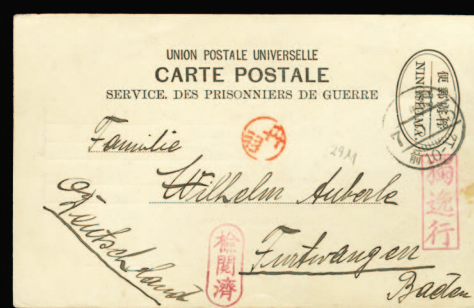 UNION POSTALE UNIVERSELLE
CARTE POSTALE
SERVICE. DES PRISONNIERS DE GUERRE
Familie
Wilhelm Auberle
Furtwangen
Baden
Deutschland
檢閲濟
獨逸行
俘虜郵便